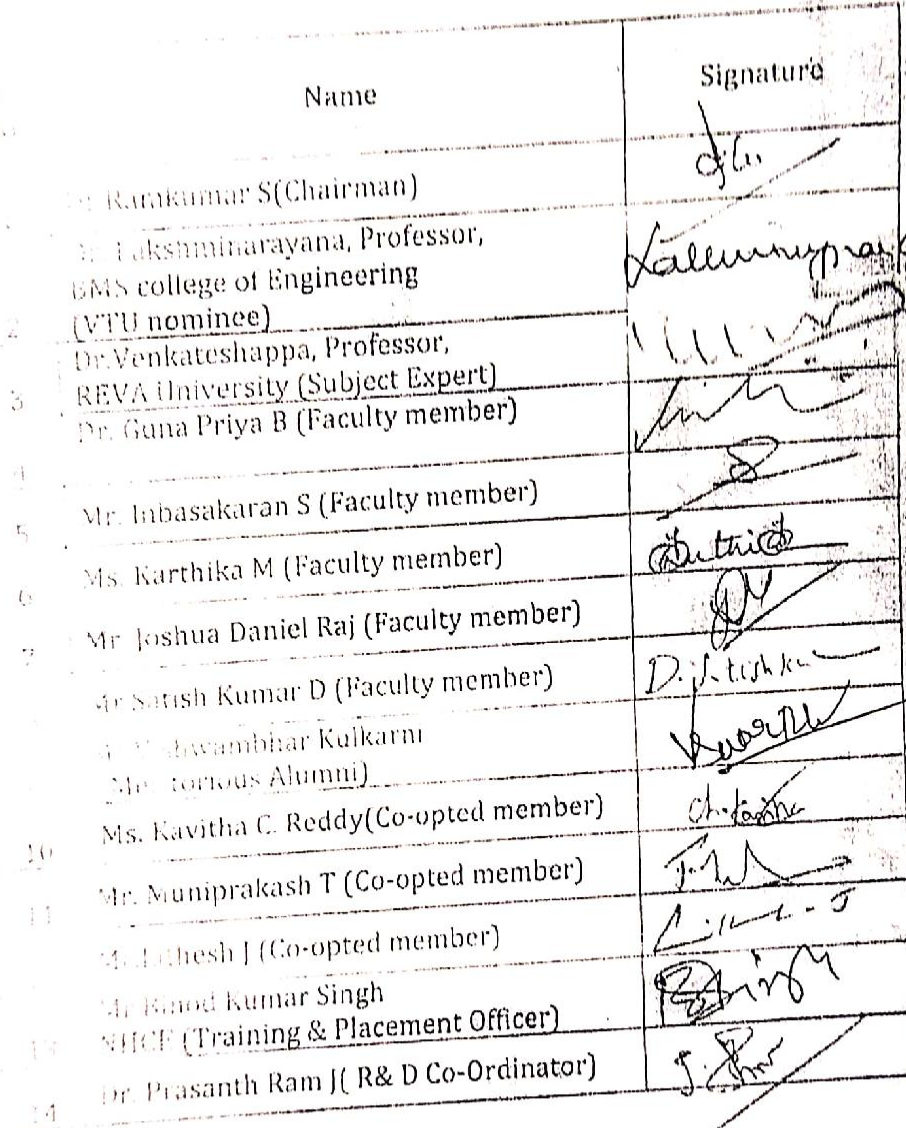 Name
Signature
Ramkumar S(Chairman)
Lakshminarayana, Professor,
BMS college of Engineering
2 (VTU nominee)
Dr.Venkateshappa, Professor,
3 REVA University (Subject Expert)
Dr. Guna Priya B (Faculty member)
4
5 Mr. Inbasakaran S (Faculty member)
6 Ms. Karthika M (Faculty member)
7 Mr Joshua Daniel Raj (Faculty member)
Mr Satish Kumar D (Faculty member) D. Satish Ku
Kulkarni
Alumni)
10 Ms. Kavitha C. Reddy(Co-opted member)
11 Mr. Muniprakash T (Co-opted member)
J (Co-opted member)
Mr Binod Kumar Singh
13 NHCE (Training & Placement Officer)
14 Dr. Prasanth Ram J( R& D Co-Ordinator)